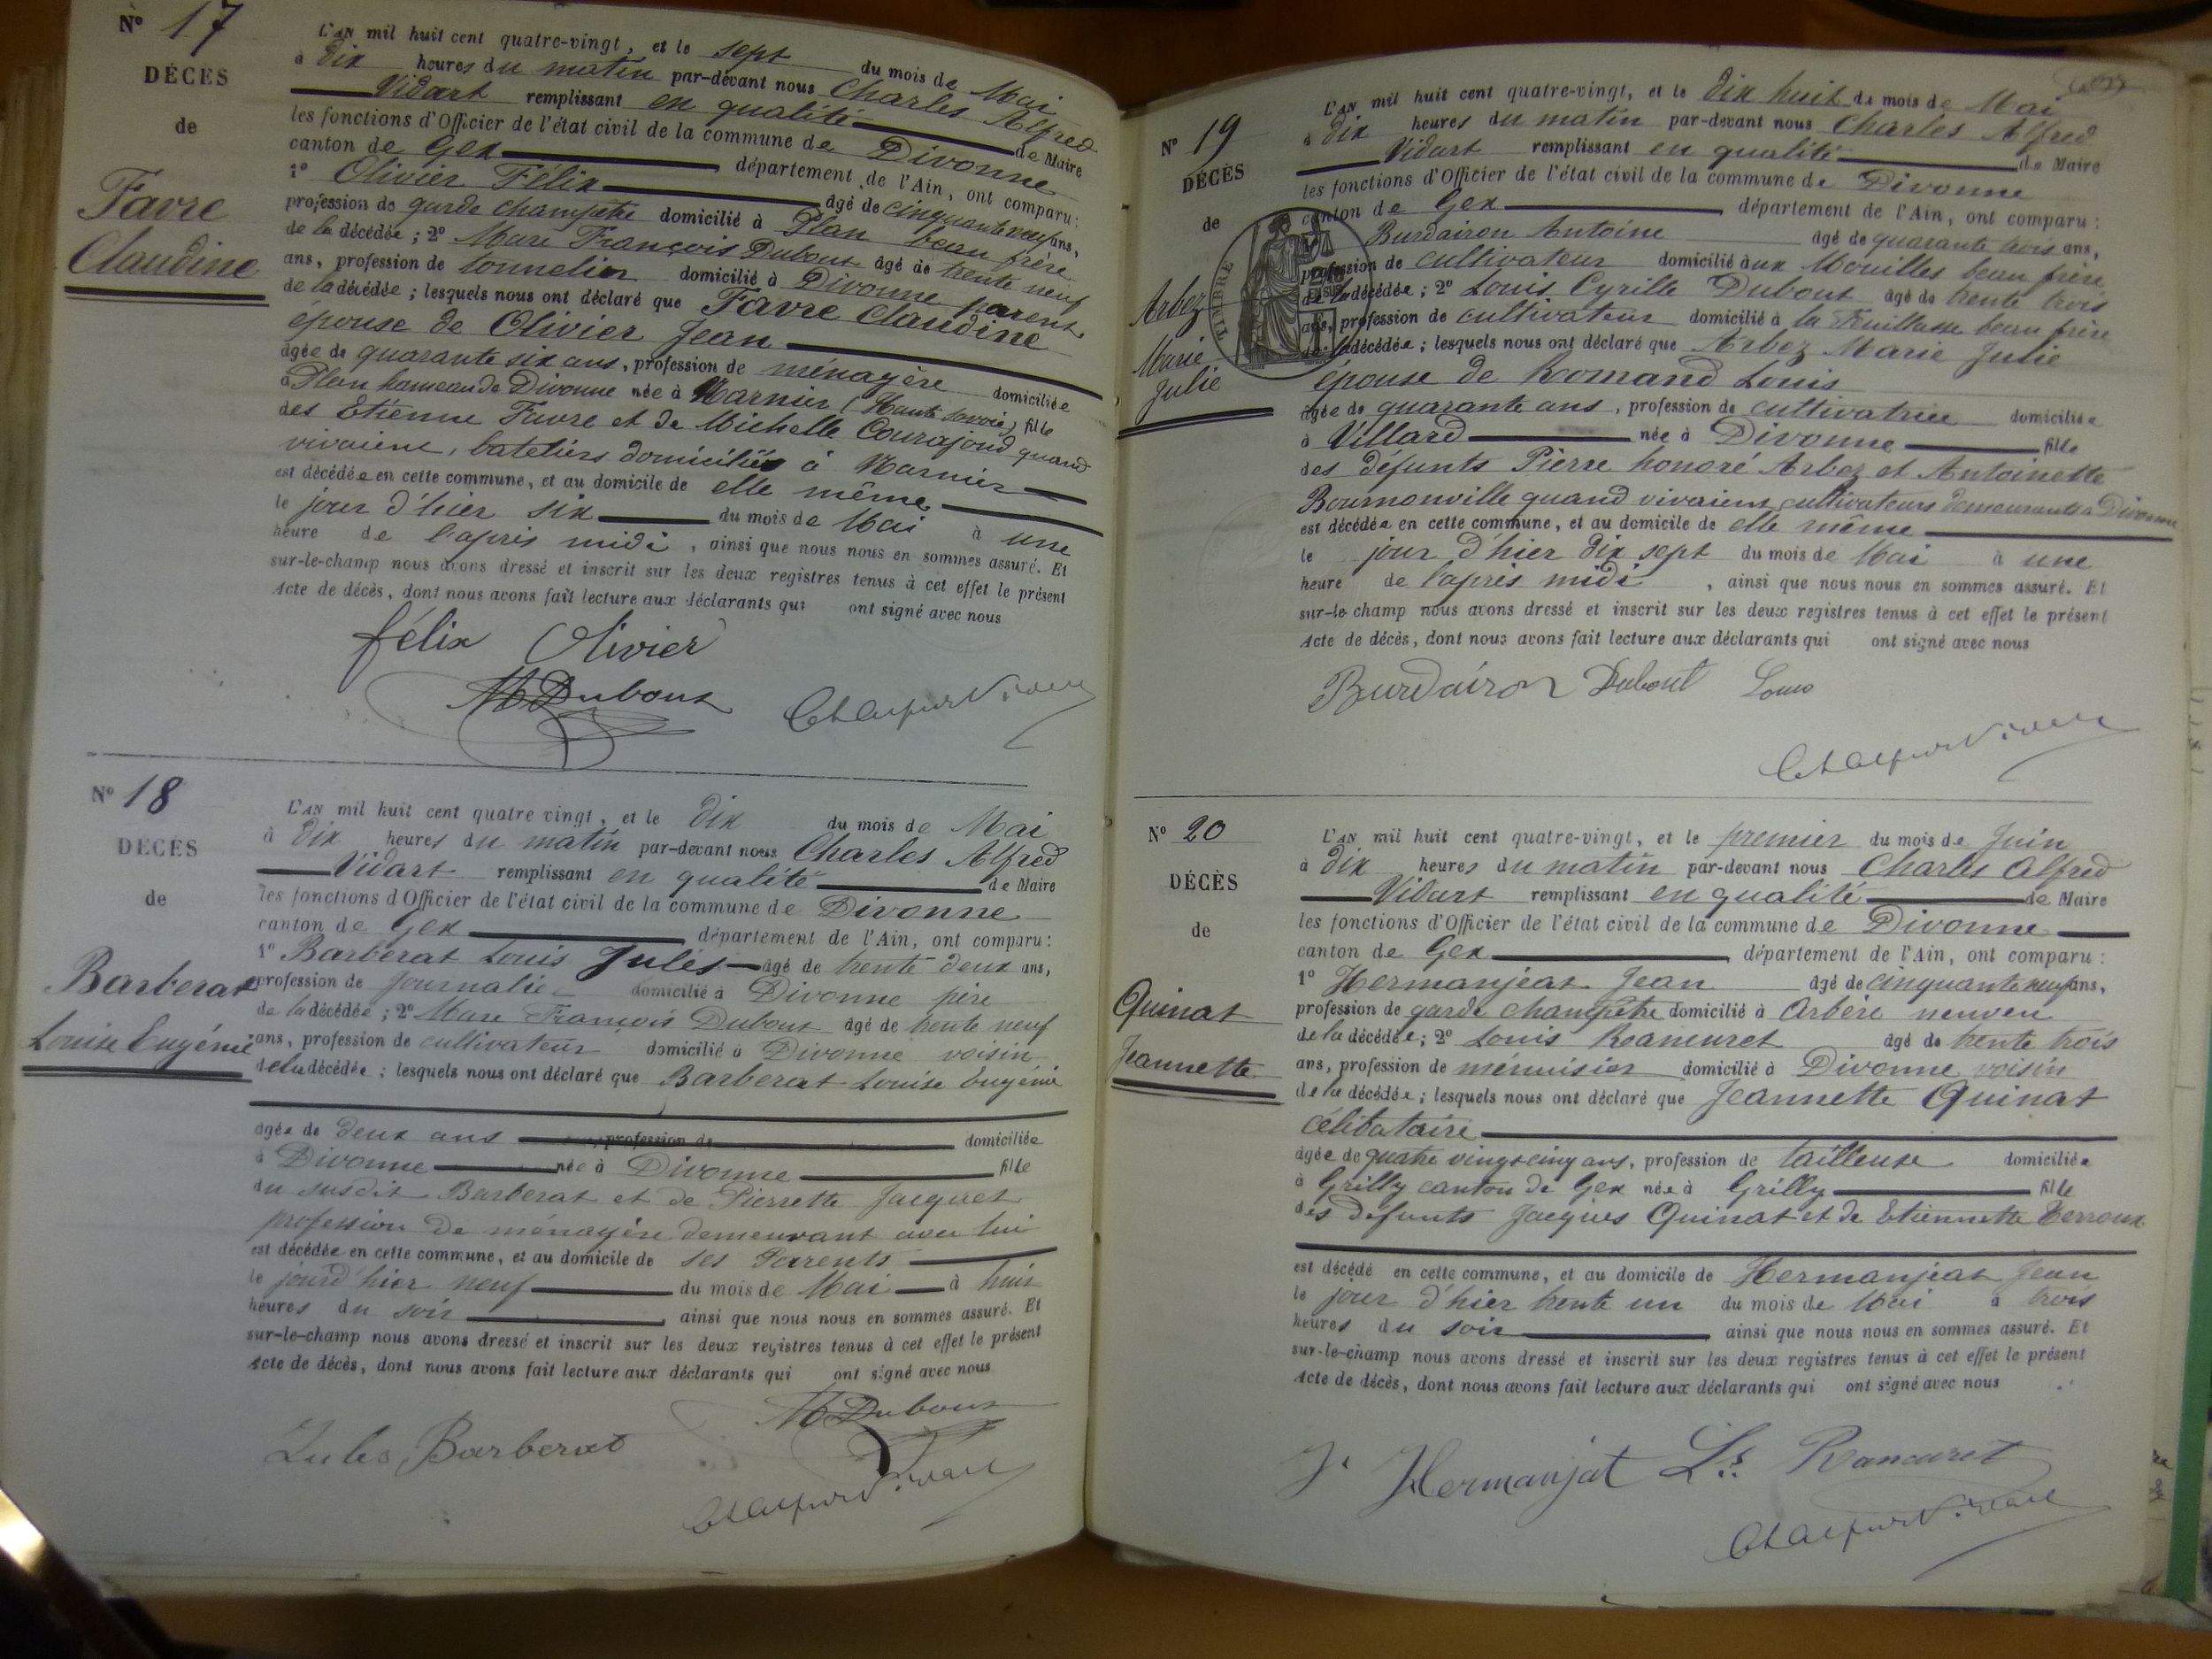 N° 17
DÉCÈS
de
Favre
Claudine
L'AN mil huit cent quatre-vingt, et le sept du mois de Mai
à dix heures du matin par-devant nous Charles Alfred
Vidart remplissant en qualité de Maire
les fonctions d'Officier de l'état civil de la commune de Divonne
canton de Gex département de l'Ain, ont comparu :
1° Olivier Félix âgé de cinquante neuf ans,
profession de garde champêtre domicilié à Plan beau frère
de la décédée ; 2° Marc François Dubout âgé de trente neuf
ans, profession de tonnelier domicilié à Divonne parent
de la décédée ; lesquels nous ont déclaré que Favre Claudine
épouse de Olivier Jean
âgée de quarante six ans, profession de ménagère domiciliée
à Plan hameau de Divonne née à Narnier (Haute Savoie) fille
des Etienne Favre et de Michelle Courajoud quand
vivaient, bateliers domiciliés à Narnier
est décédée en cette commune, et au domicile de elle même
le jour d'hier six du mois de Mai à une
heure de l'après midi, ainsi que nous nous en sommes assuré. Et
sur-le-champ nous avons dressé et inscrit sur les deux registres tenus à cet effet le présent
Acte de décès, dont nous avons fait lecture aux déclarants qui ont signé avec nous
félix Olivier
M Dubout
N° 18
DÉCÈS
de
Barberat
Louise Eugénie
L'AN mil huit cent quatre vingt, et le dix du mois de Mai
à dix heures du matin par-devant nous Charles Alfred
Vidart remplissant en qualité de Maire
les fonctions d'Officier de l'état civil de la commune de Divonne
canton de Gex département de l'Ain, ont comparu :
1° Barberat Louis Jules âgé de trente deux ans,
profession de Journalier domicilié à Divonne père
de la décédée ; 2° Marc François Dubout âgé de trente neuf
ans, profession de cultivateur domicilié à Divonne voisin
de la décédée ; lesquels nous ont déclaré que Barberat Louise Eugénie
âgée de deux ans profession de domiciliée
à Divonne née à Divonne fille
du susdit Barberat et de Pierrette Jacquet
profession de ménagère demeurant avec lui
est décédée en cette commune, et au domicile de ses Parents
le jour d'hier neuf du mois de Mai à huit
heures du soir ainsi que nous nous en sommes assuré. Et
sur-le-champ nous avons dressé et inscrit sur les deux registres tenus à cet effet le présent
Acte de décès, dont nous avons fait lecture aux déclarants qui ont signé avec nous
M Dubout
Jules Barberat
N° 19
DÉCÈS
de
Arbez
Marie
Julie
TIMBRE
L'AN mil huit cent quatre-vingt, et le dix huit du mois de Mai
à dix heures du matin par-devant nous Charles Alfred
Vidart remplissant en qualité de Maire
les fonctions d'Officier de l'état civil de la commune de Divonne
canton de Gex département de l'Ain, ont comparu :
Burdairon Antoine âgé de quarante trois ans,
profession de cultivateur domicilié aux Mouilles beau frère
de la décédée ; 2° Louis Cyrille Dubout âgé de trente trois
ans, profession de cultivateur domicilié à la Feuillasse beau frère
de la décédée ; lesquels nous ont déclaré que Arbez Marie Julie
épouse de Romand Louis
âgée de quarante ans, profession de cultivatrice domiciliée
à Villard née à Divonne fille
des défunts Pierre honoré Arbez et Antoinette
Bournonville quand vivaient cultivateurs demeurants à Divonne
est décédée en cette commune, et au domicile de elle même
le jour d'hier dix sept du mois de Mai à une
heure de l'après midi, ainsi que nous nous en sommes assuré. Et
sur-le champ nous avons dressé et inscrit sur les deux registres tenus à cet effet le présent
Acte de décès, dont nous avons fait lecture aux déclarants qui ont signé avec nous
Burdairon Dubout Louis
N° 20
DÉCÈS
de
Quinat
Jeannette
L'AN mil huit cent quatre-vingt, et le premier du mois de Juin
à dix heures du matin par-devant nous Charles Alfred
Vidart remplissant en qualité de Maire
les fonctions d'Officier de l'état civil de la commune de Divonne
canton de Gex département de l'Ain, ont comparu :
1° Hermanjeat Jean âgé de cinquante neuf ans,
profession de garde champêtre domicilié à Arbère neuveu
de la décédée ; 2° Louis Rancuret âgé de trente trois
ans, profession de ménuisier domicilié à Divonne voisin
de la décédée ; lesquels nous ont déclaré que Jeannette Quinat
célibataire
âgée de quatre vingt cinq ans, profession de tailleuse domiciliée
à Grilly canton de Gex née à Grilly fille
des défunts Jacques Quinat et de Etiennette Perroux
est décédé en cette commune, et au domicile de Hermanjeat Jean
le jour d'hier trente un du mois de Mai à trois
heures du soir ainsi que nous nous en sommes assuré. Et
sur-le-champ nous avons dressé et inscrit sur les deux registres tenus à cet effet le présent
Acte de décès, dont nous avons fait lecture aux déclarants qui ont signé avec nous
Jn Hermanjat Ls Rancuret